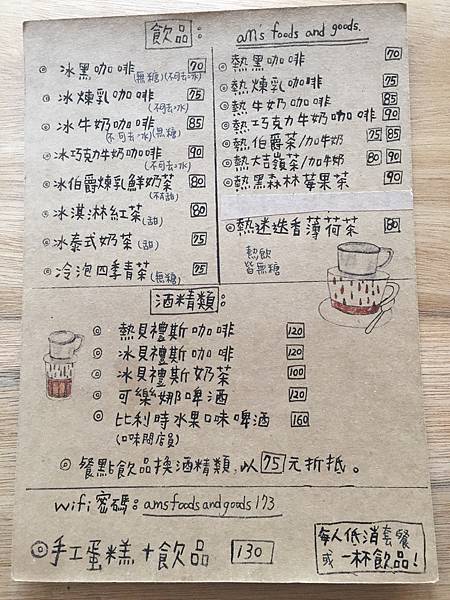 飲品：
◎ 冰黑咖啡 70
(無糖)(不可去冰)
◎ 冰煉乳咖啡 75
(不可去冰)
◎ 冰牛奶咖啡 85
(不可去冰)(無糖)
◎ 冰巧克力牛奶咖啡 90
(不可去冰)
◎ 冰伯爵煉乳鮮奶茶 80
◎ 冰淇淋紅茶(甜) 80
◎ 冰泰式奶茶(甜) 75
◎ 冷泡四季青茶(無糖) 75
am's foods and goods.
◎ 熱黑咖啡 70
◎ 熱煉乳咖啡 75
◎ 熱牛奶咖啡 85
◎ 熱巧克力牛奶咖啡 90
◎ 熱伯爵茶/加牛奶 75 85
◎ 熱大吉嶺茶/加牛奶 80 90
◎ 熱黑森林莓果茶 90
◎ 熱迷迭香薄荷茶 80
熱飲
皆無糖
酒精類：
◎ 熱貝禮斯咖啡 120
◎ 冰貝禮斯咖啡 120
◎ 冰貝禮斯奶茶 100
◎ 可樂娜啤酒 120
◎ 比利時水果口味啤酒 160
(口味問店員)
◎ 餐點飲品換酒精類，以75元折抵。
wifi密碼：amsfoodsandgoods173
◎手工蛋糕＋飲品 130
每人低消套餐
或一杯飲品！